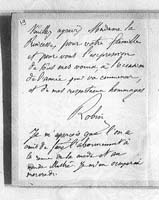 Veuillez agréer, Madame la
Princesse, pour votre famille
et pour vous l'expression
de tous mes voeux à l'occasion
de l'année qui va commencer
et de mes respectueux hommages
Robin
Je m'aperçois que l'on a
omis de l'abonnement à
la mode et on
Je m'en occuperai
mercredi.